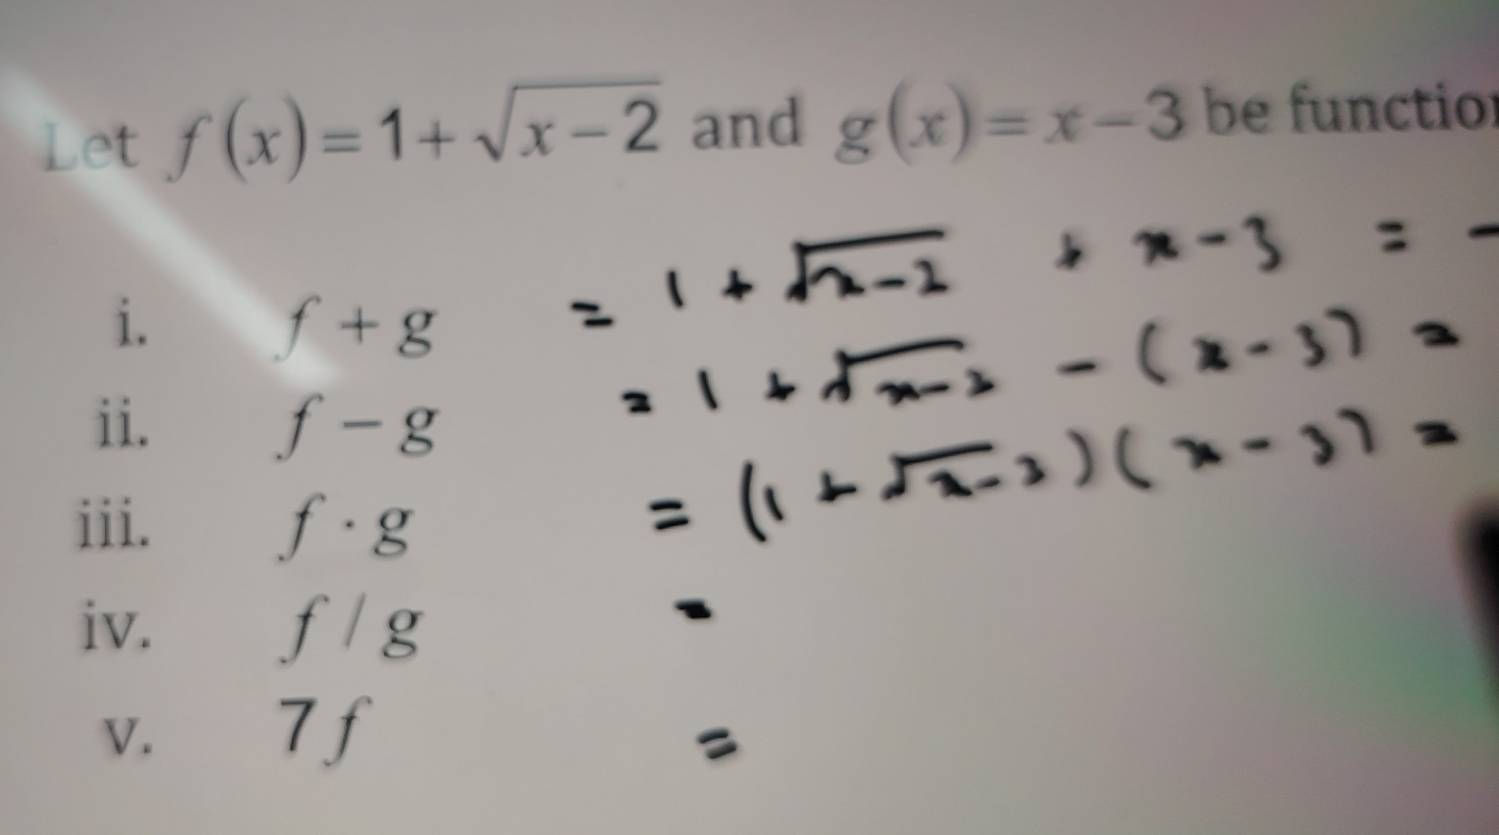 Let f(x)=1+√(x-2) and g(x)=x-3 be function
i. f+g = 1 + √(x-2) + x-3 = -
ii. f-g = 1 + √(x-2) - (x-3) =
iii. f·g = (1 + √x-2)(x-3) =
iv. f/g =
v. 7f =